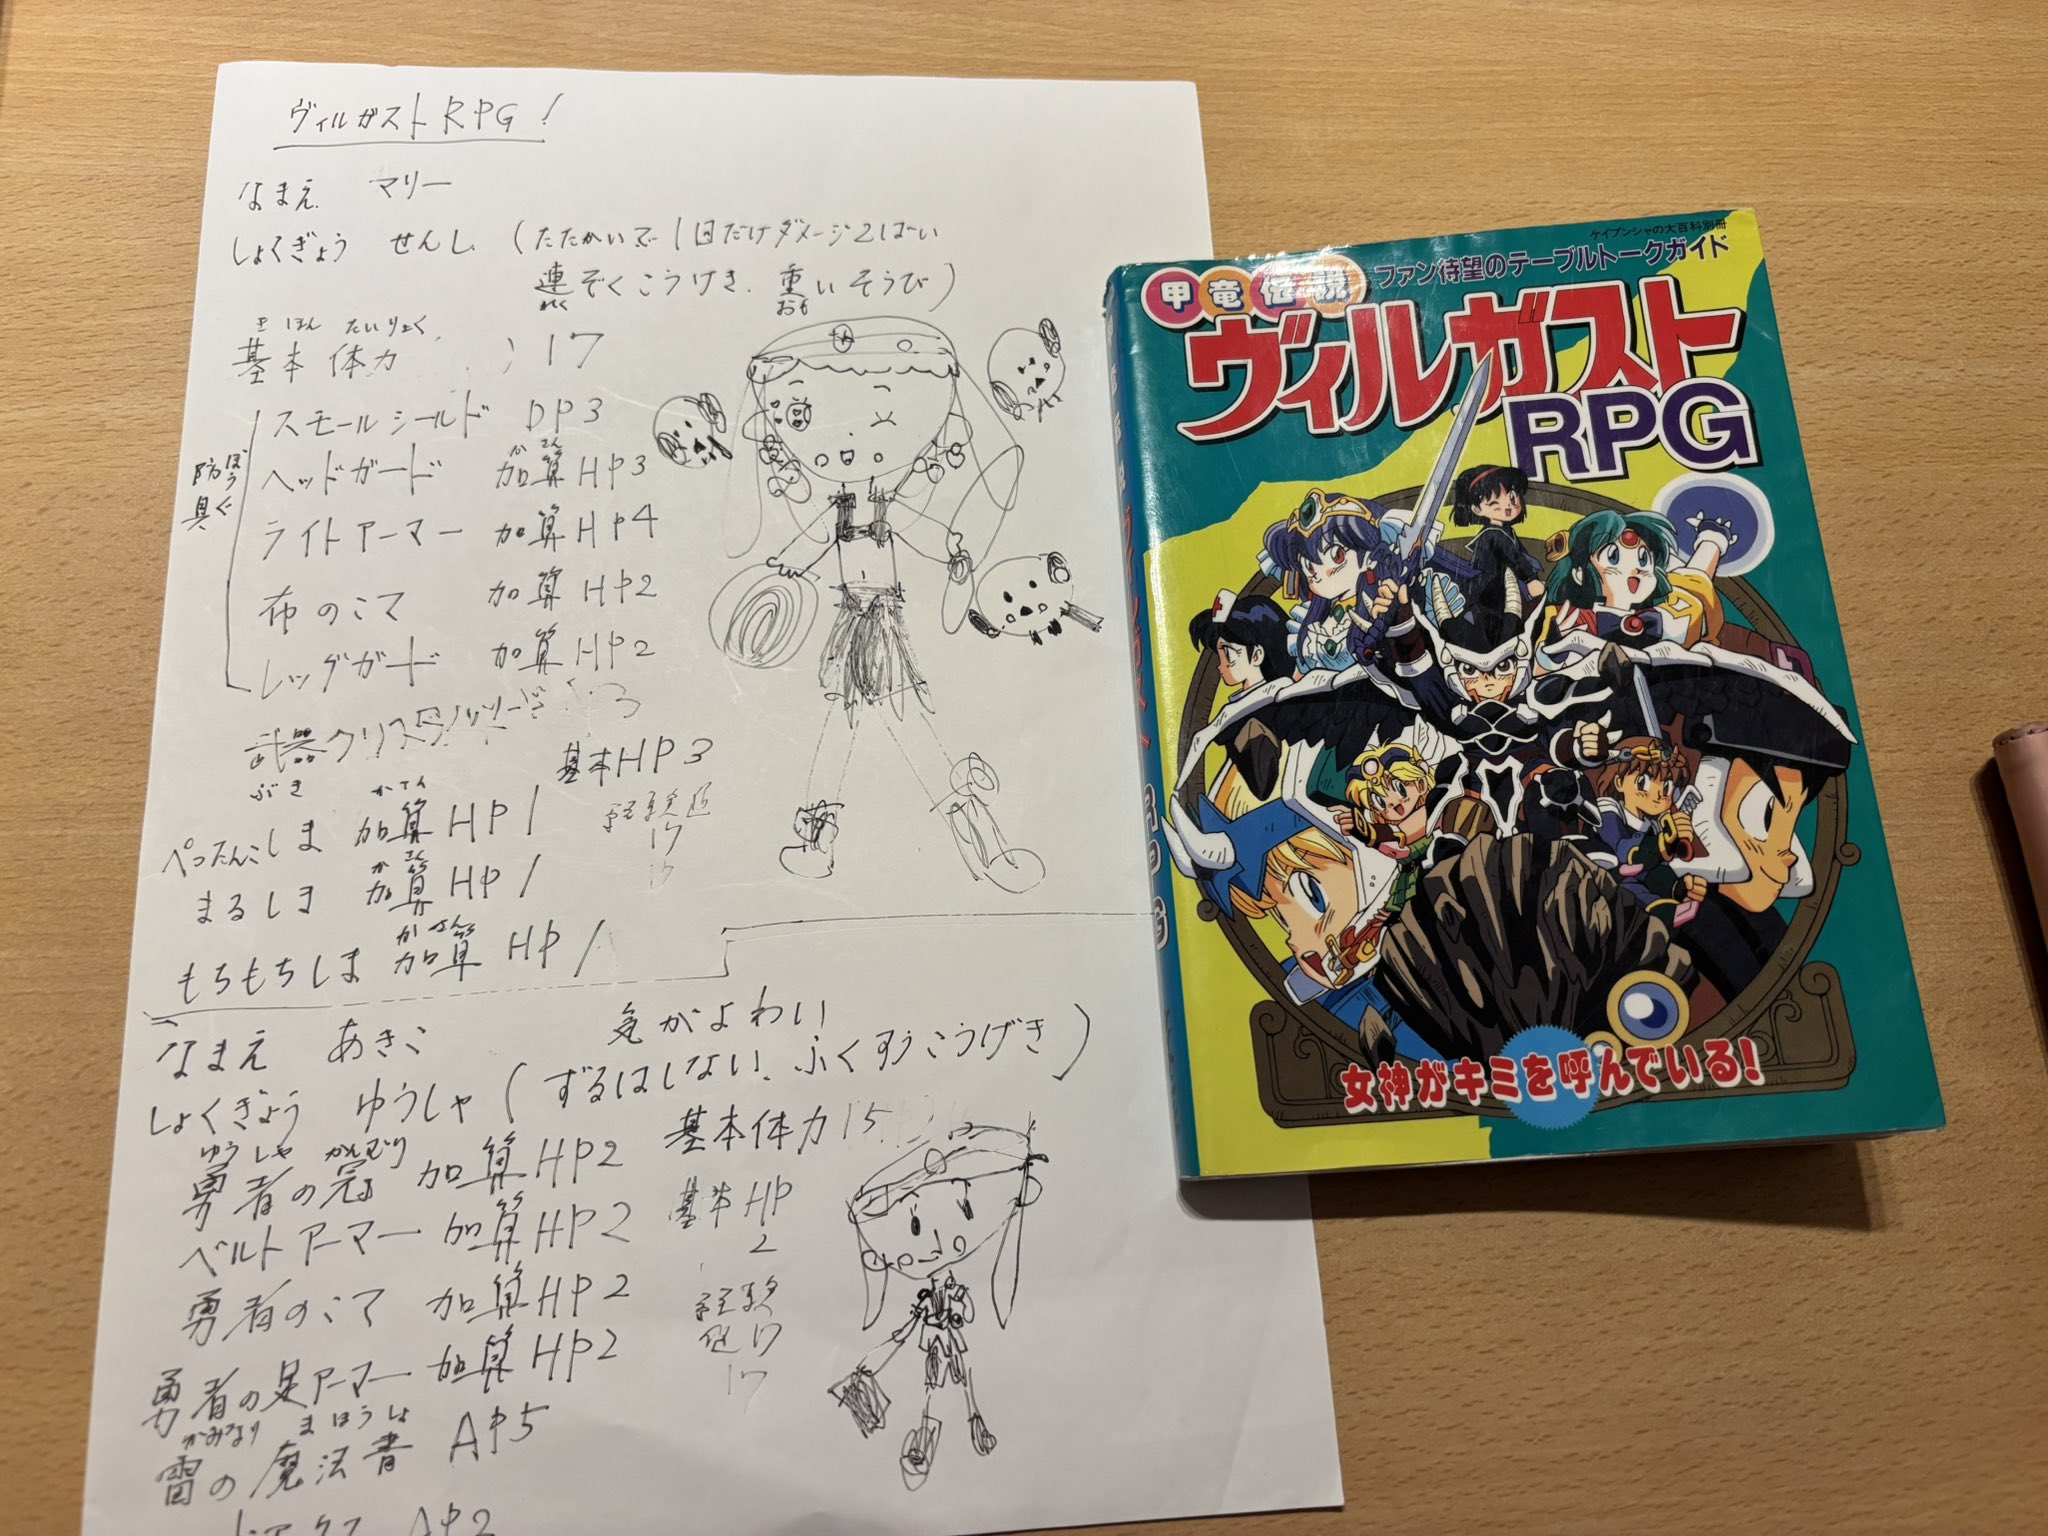 ヴィルガストRPG!
なまえ マリー
しょくぎょう せんし (たたかいで1回だけダメージ2ばい
連ぞくこうげき、重いそうび)
れん おも
きほん たいりょく
基本体力 17
防具 ぼうぐ
スモールシールド DP3
かさん
ヘッドガード 加算HP3
ライトアーマー 加算HP4
布のこて 加算HP2
レッグガード 加算HP2
武器クリスタルソード
ぶき
基本HP3
経験
17
かさん
ぺったんこしま 加算HP1
かさん
まるしま 加算HP1
かさん
もちもちしま 加算HP1
なまえ あきこ 気がよわい
しょくぎょう ゆうしゃ (ずるはしない、ふくすうこうげき)
基本体力15
ゆうしゃ かんむり
勇者の冠 加算HP2
基本HP
2
ベルトアーマー 加算HP2
勇者のこて 加算HP2
経験
値17
17
勇者の足アーマー 加算HP2
かみなり まほうしょ
雷の魔法書 AP5
AP2
ケイブンシャの大百科別冊
ファン待望のテーブルトークガイド
甲竜伝説
ヴィルガスト
RPG
女神がキミを呼んでいる!